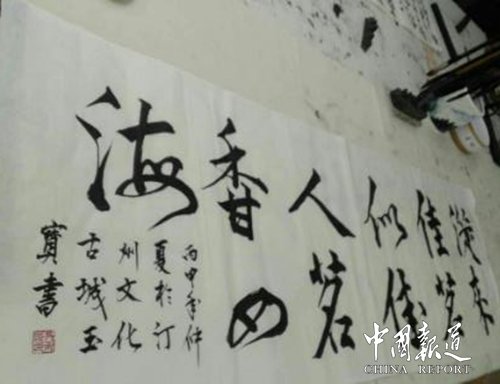 從來
佳茗
似佳
人茗
香如
海
丙申年仲
夏於汀
州文化
古城玉
寶書
中國報道
CHINA REPORT